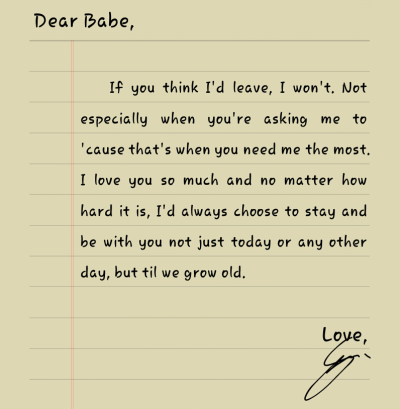 Dear Babe,
If you think I'd leave, I won't. Not
especially when you're asking me to
'cause that's when you need me the most.
I love you so much and no matter how
hard it is, I'd always choose to stay and
be with you not just today or any other
day, but til we grow old.
Love,